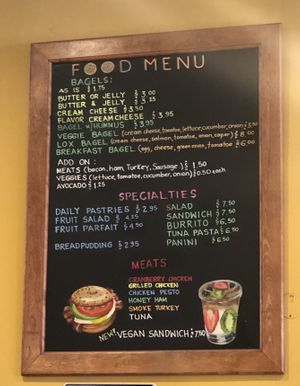 FOOD MENU
BAGELS:
AS IS $1.75
BUTTER OR JELLY $3.00
BUTTER & JELLY $3.25
CREAM CHEESE $3.50
FLAVOR CREAMCHEESE $3.95
BAGEL W/HUMMUS $3.95
VEGGIE BAGEL (cream cheese, tomatoe, lettuce, cucumber, onion)
LOX BAGEL (cream cheese, salmon, tomatoe, onion, caper) $8.00
BREAKFAST BAGEL (egg, cheese, green, tomatoe) $6.00
ADD ON:
MEATS (bacon, ham, Turkey, Sausage) $1.50
VEGGIES (lettuce, tomatoe, cucumber, onion) $0.50 each
AVOCADO $1.25
SPECIALTIES
DAILY PASTRIES $2.95
FRUIT SALAD $4.25
FRUIT PARFAIT $4.50
BREADPUDDING $2.95
SALAD $7.50
SANDWICH $7.50
BURRITO $6.50
TUNA PASTA $6.50
PANINI $6.50
MEATS
CRANBERRY CHICKEN
GRILLED CHICKEN
CHICKEN PESTO
HONEY HAM
SMOKE TURKEY
TUNA
NEW! VEGAN SANDWICH $7.50